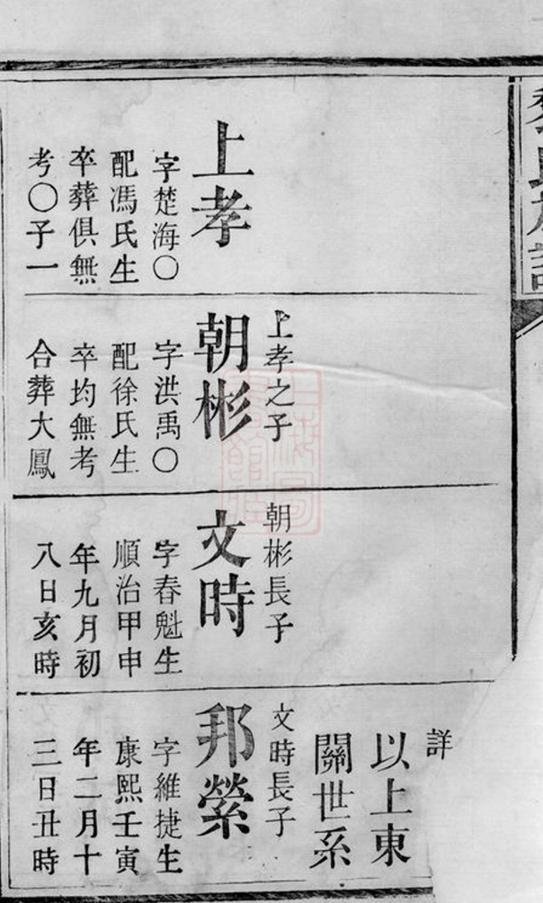 上孝
字楚海○
配馮氏生
卒葬俱無
考○子一
上孝之子
朝彬
字洪禹○
配徐氏生
卒均無考
合葬大鳳
朝彬長子
文時
字春魁生
順治甲申
年九月初
八日亥時
詳
以上東
關世系
文時長子
邦縈
字維捷生
康熙壬寅
年二月十
三日丑時